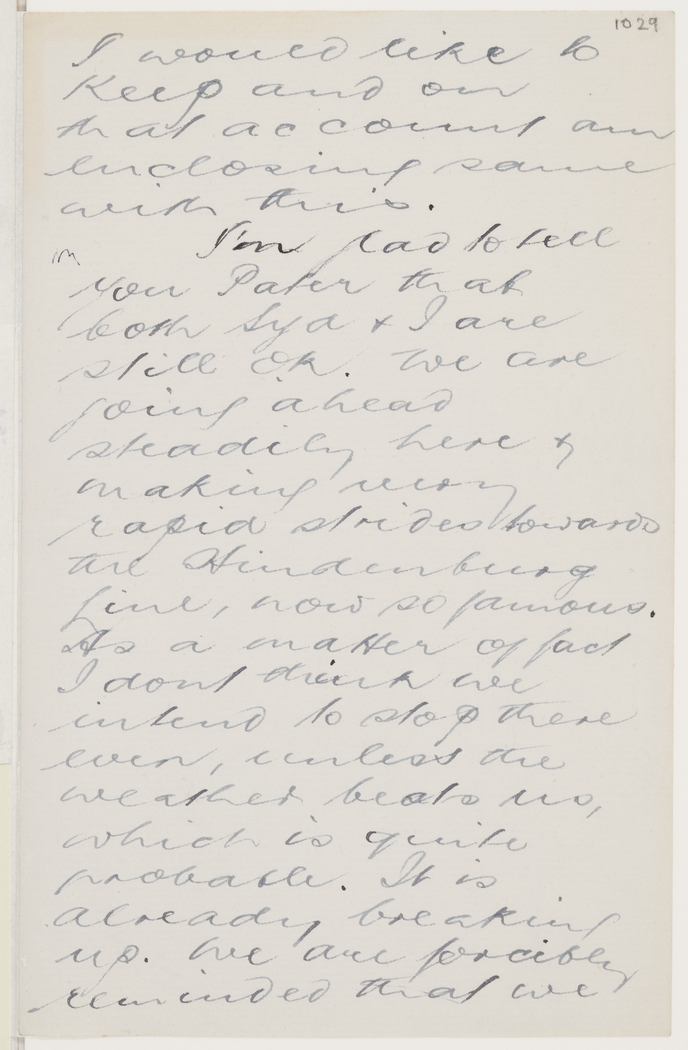 1029
I would like to
keep and on
that account am
enclosing same
with this.
I'm glad to tell
you Pater that
both Syd & I are
still OK. We are
going ahead
steadily here &
making very
rapid strides towards
the Hindenburg
Line, now so famous.
As a matter of fact
I dont think we
intend to stop there
even, unless the
weather beats us,
which is quite
probable. It is
already breaking
up. We are forcibly
reminded that we